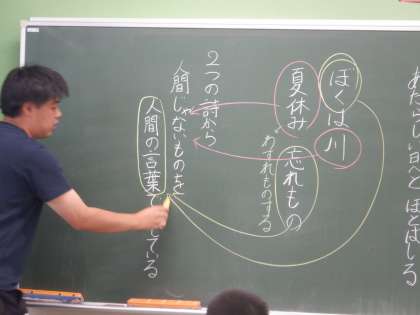 あたらしい日へとほとばしる
ぼくは川
夏休み 忘れもの
わすれものする
2つの詩から
人間じゃないものを
人間の言葉で している